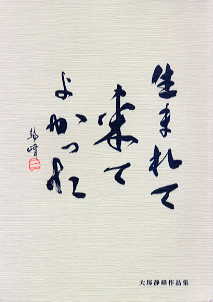 生まれて
来て
よかった
静峰
大塚静峰作品集